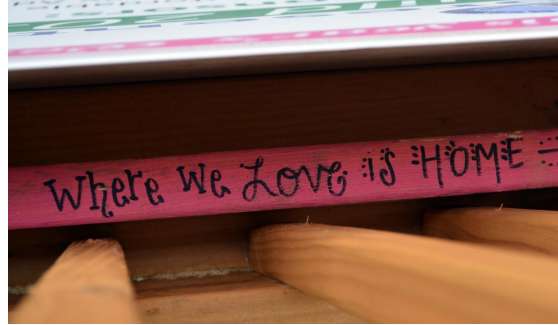 Where we Love is HOME —